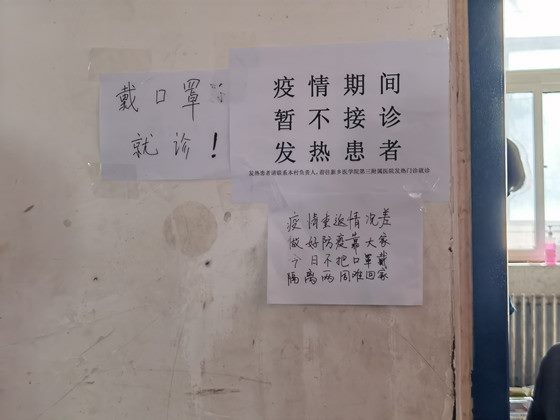 戴口罩
就诊!
疫情期间
暂不接诊
发热患者
发热患者请联系本村负责人，前往新乡医学院第三附属医院发热门诊就诊
疫情重返情况差
做好防疫靠大家
今日不把口罩戴
隔离两周难回家